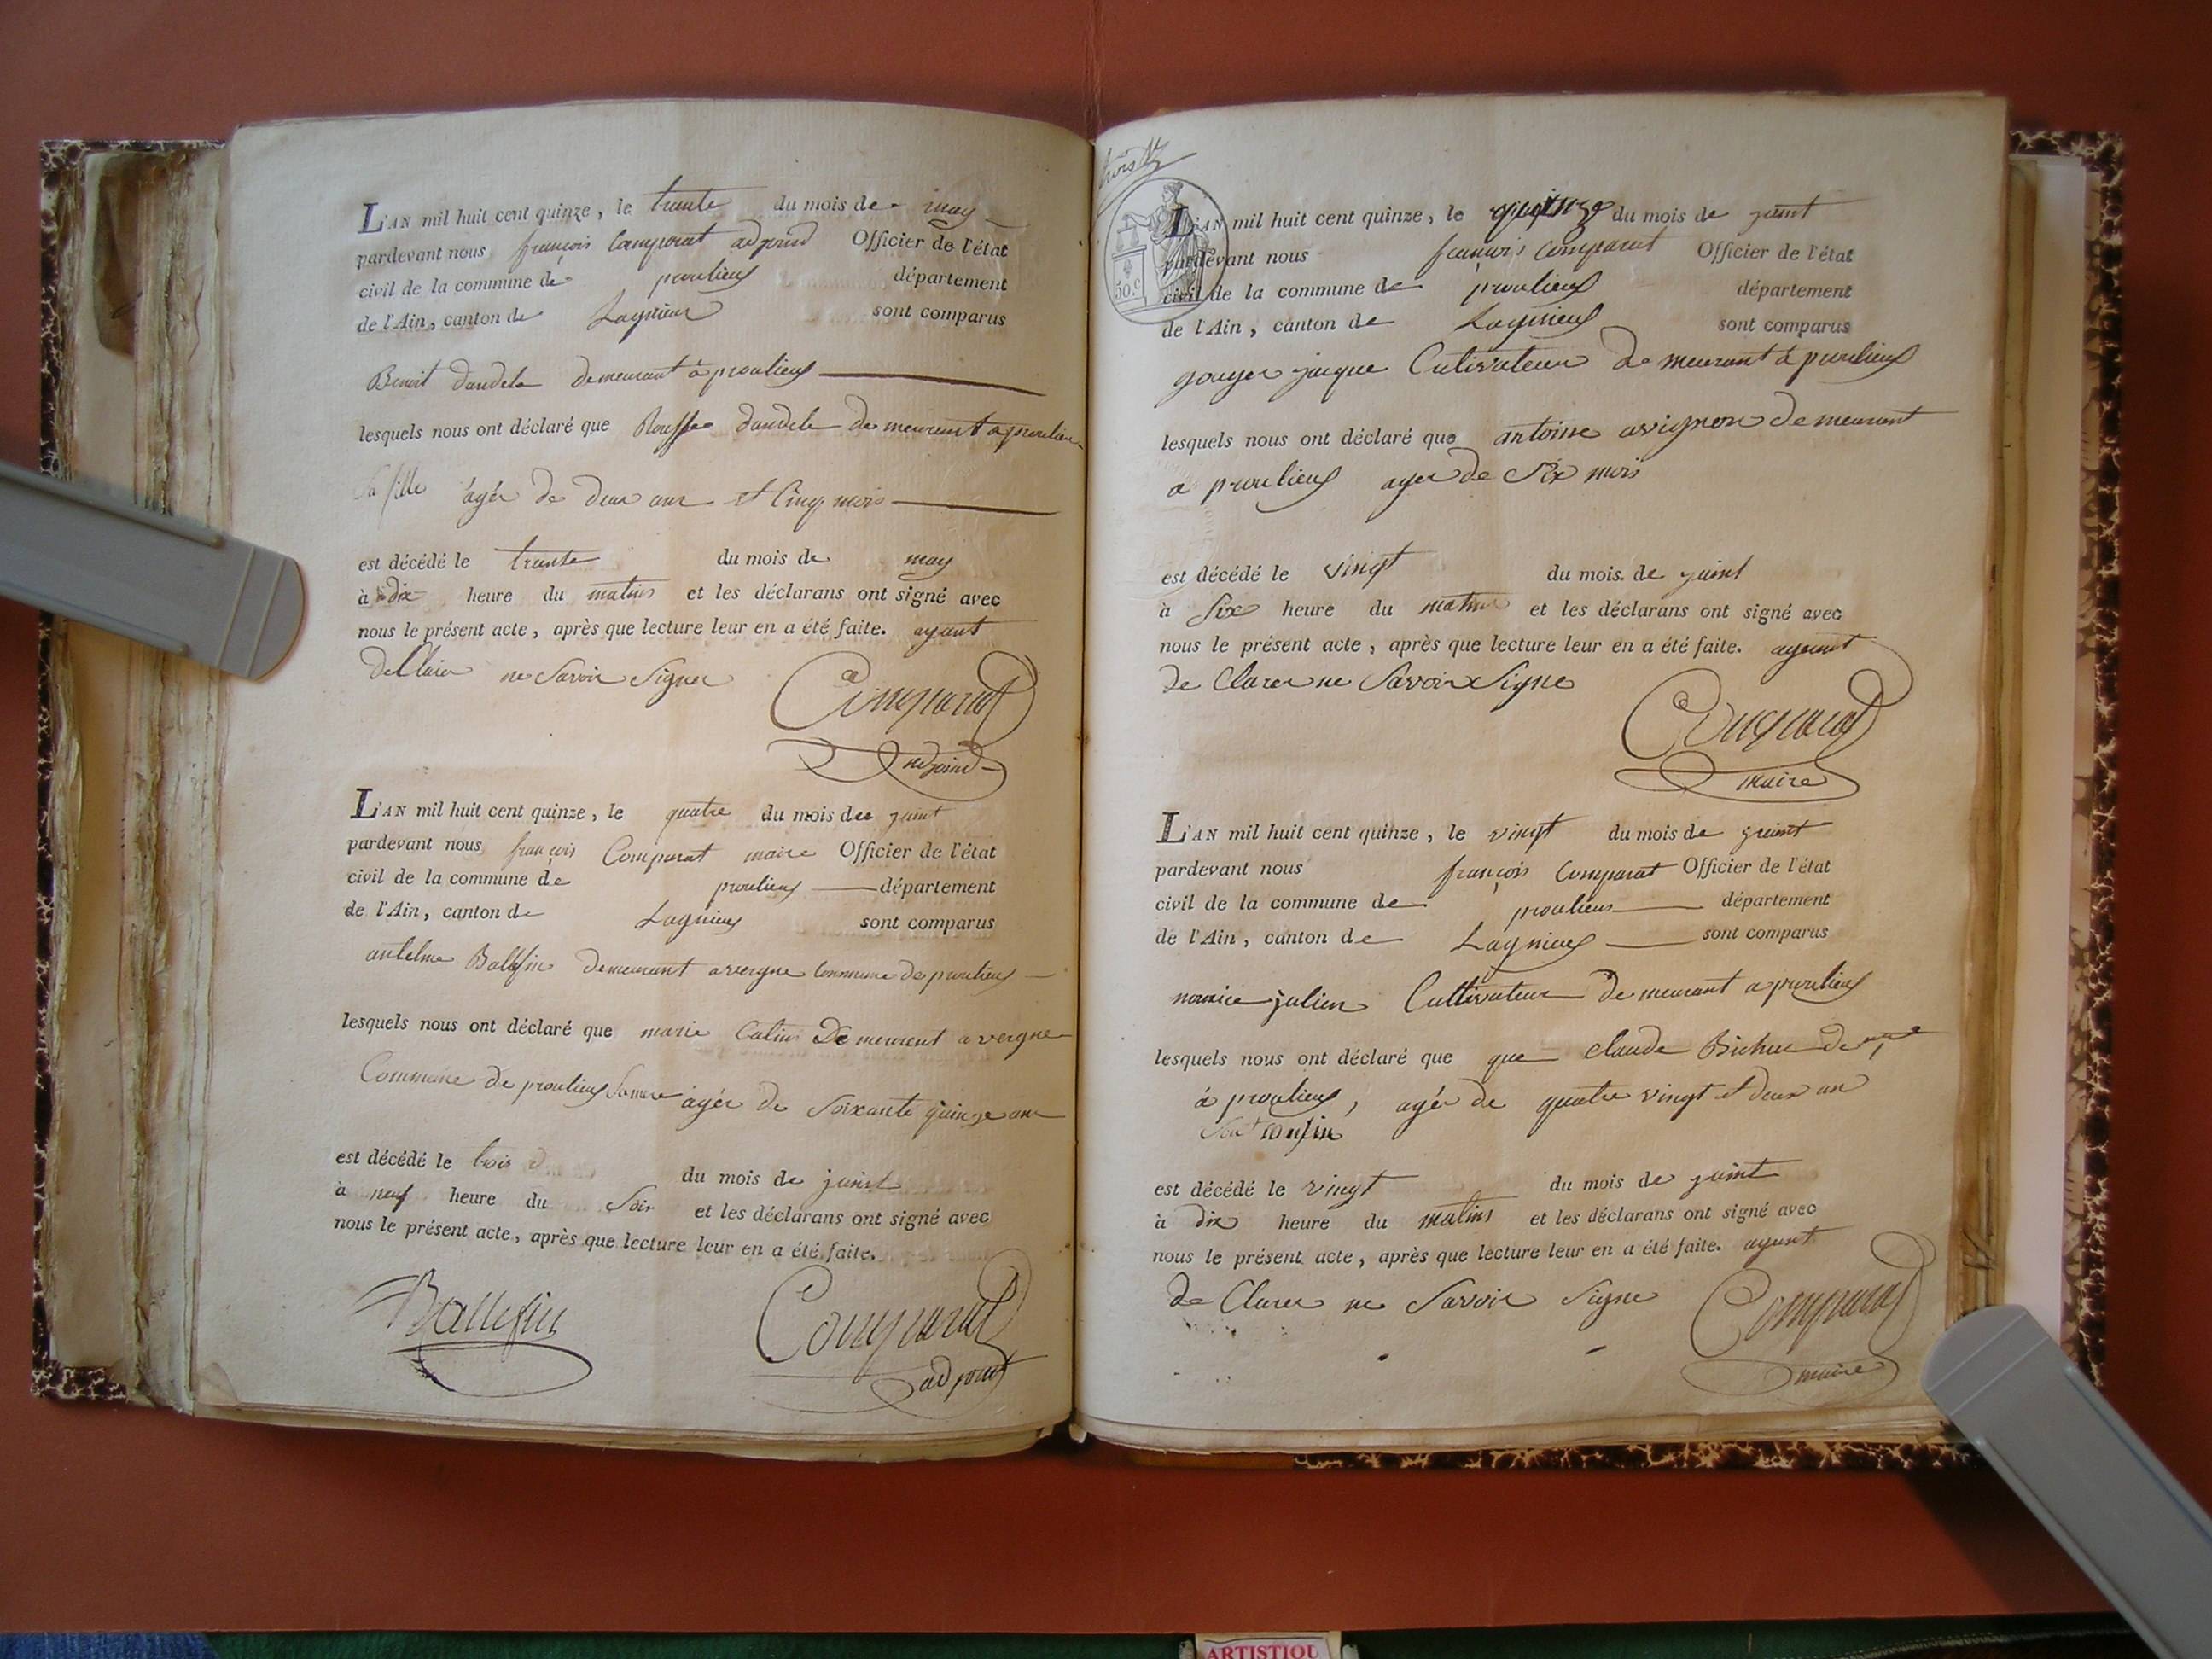 L'AN mil huit cent quinze, le trente du mois de may
pardevant nous françois Comparat adjoind Officier de l'état
civil de la commune de proulieux département
de l'Ain, canton de Lagnieux sont comparus
Benoit dandela demeurant à proulieux
lesquels nous ont déclaré que dandela demeurent a proulieux
sa fille ágér de deux ans et Cinq mois
est décédé le trente du mois de may
à dix heure du matins et les déclarans ont signé avec
nous le présent acte, après que lecture leur en a été faite. ayant
ne Savoir Signer
Comparat
adjoind
L'AN mil huit cent quinze, le quatre du mois de juint
pardevant nous françois Comparat maire Officier de l'état
civil de la commune de proulieux département
de l'Ain, canton de Lagnieux sont comparus
antelme Ballefin demeurant a vergne Commune de proulieux
lesquels nous ont déclaré que marie Demeurent a vergne
Commune de proulieux ágér de Soixante quinze ans
est décédé le trois du mois de juint
à neuf heure du Soir et les déclarans ont signé avec
nous le présent acte, après que lecture leur en a été faite.
Ballefin Comparat
adjoint
50.c
L'AN mil huit cent quinze, le quinze du mois de juint
pardevant nous françois Comparat Officier de l'état
civil de la commune de proulieux département
de l'Ain, canton de Lagnieux sont comparus
jacque Cutivateur demeurant à proulieux
lesquels nous ont déclaré que antoine avignon demeurant
a proulieux ager de Six mois
est décédé le vingt du mois de juint
à Six heure du matin et les déclarans ont signé avec
nous le présent acte, après que lecture leur en a été faite. ayant
de Clarer ne Savoir Signe
Comparat
maire
L'AN mil huit cent quinze, le vingt du mois de juint
pardevant nous françois Comparat Officier de l'état
civil de la commune de proulieux département
de l'Ain, canton de Lagnieux sont comparus
julien Cultivateur demeurant a proulieux
lesquels nous ont déclaré que que claude
à proulieux, agér de quatre vingt et deux an
est décédé le vingt du mois de juint
à dix heure du matins et les déclarans ont signé avec
nous le présent acte, après que lecture leur en a été faite. ayant
de Clarer ne Savoir Signe Comparat
maire
ARTISTIQU